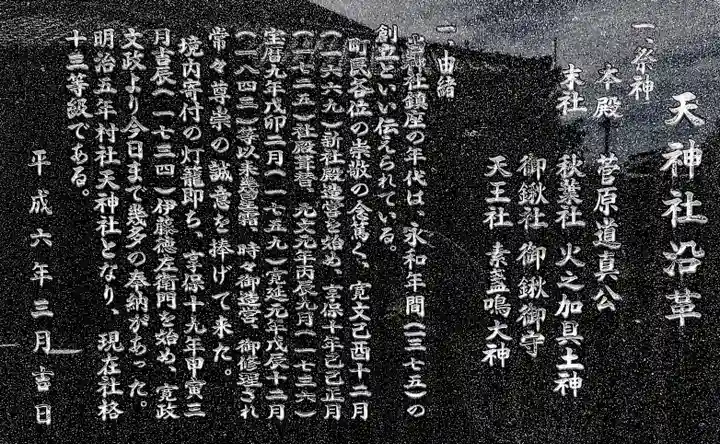 天神社沿革
一、祭神
本殿 菅原道真公
末社 秋葉社 火之加具土神
御鍬社 御鍬御守
天王社 素盞鳴大神
一、由緒
当神社鎮座の年代は、永和年間(三七五)の
創立といい伝えられている。
町民各位の崇敬の念篤く、寛文己酉十二月
(一六六九)新社殿造営を始め、享保十年乙己正月
(一七二五)社殿葺替、元文元年丙辰九月(一七三六)
宝暦九年戊卯二月(一七五九)寛延元年戊辰十二月
(一八四三)等以来幾星霜、時々御造営、御修理され
常々尊崇の誠意を捧げて来た。
境内寄付の灯籠即ち、享保十九年甲寅三
月吉辰(一七三四)伊藤徳左衛門を始め、寛政
文政より今日まで幾多の奉納があった。
明治五年村社天神社となり、現在社格
十三等級である。
平成六年三月吉日